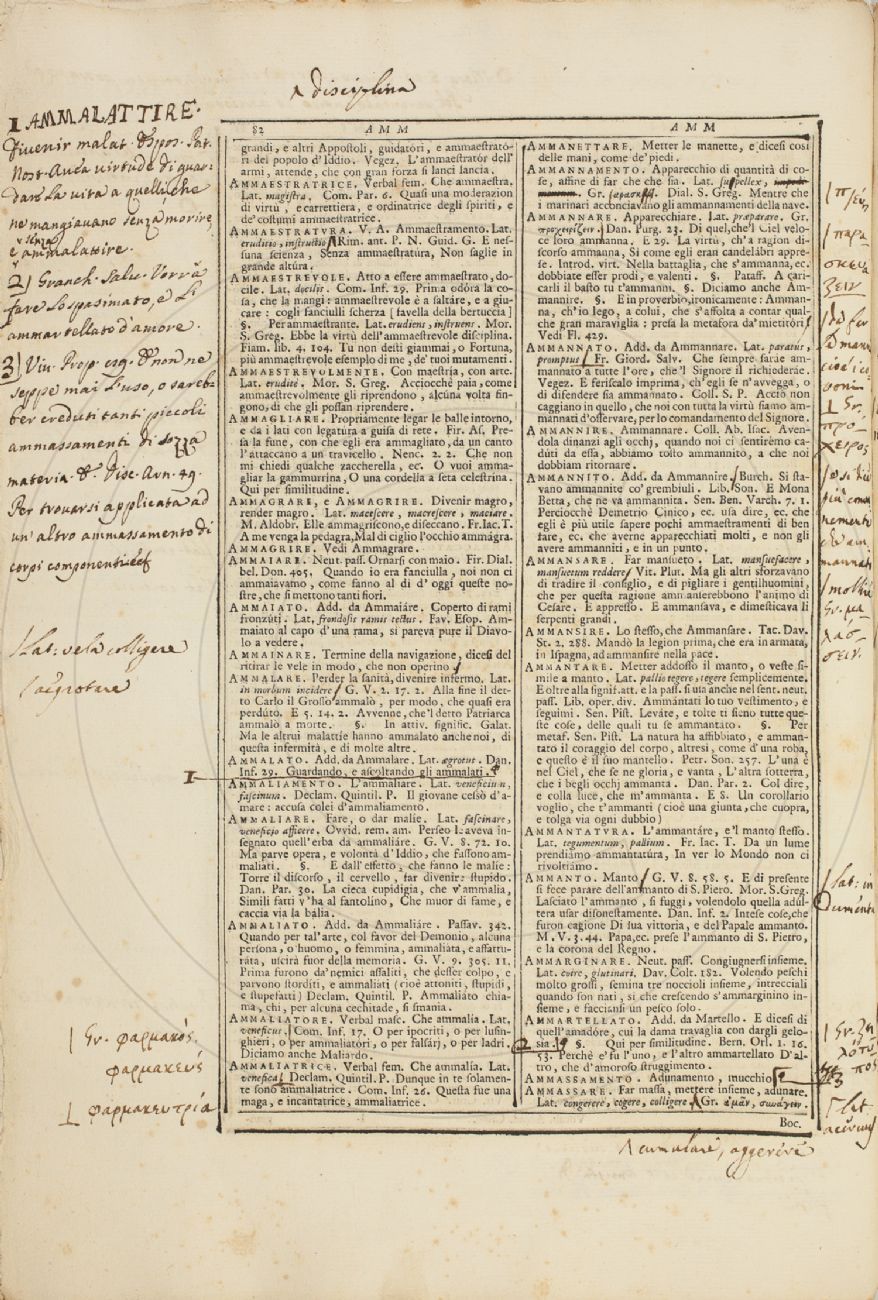 ⁁ disciplina
82 AMM
AMM
grandi, e altri Appostoli, guidatóri, e ammaestrató-
ri del popolo d'Iddio. Vegez. L'ammaestratór dell'
armi, attende, che con gran forza si lanci lancia.
AMMAESTRATRICE. Verbal fem. Che ammaestra.
Lat. magistra. Com. Par. 6. Quasi una moderazion
di virtù, e carrettiera, e ordinatrice degli spiriti, e
de' costumi ammaestratrice.
AMMAESTRATVRA. V. A. Ammaestramento. Lat.
eruditio, instructio Rim. ant. P. N. Guid. G. E nes-
suna scienza, Senza ammaestratúra, Non saglie in
grande altúra.
AMMAESTREVOLE. Atto a essere ammaestrato, do-
cile. Lat. docilis. Com. Inf. 29. Prima odóra la co-
sa, che la mangi: ammaestrevole è a saltáre, e a giu-
care: cogli fanciulli scherza [favella della bertuccia]
§. Per ammaestrante. Lat. erudiens, instruens. Mor.
S. Greg. Ebbe la virtù dell'ammaestrevole disciplina.
Fiam. lib. 4. 104. Tu non desti giammai, o Fortuna,
più ammaestrevole esemplo di me, de' tuoi mutamenti.
AMMAESTREVOLMENTE. Con maestría, con arte.
Lat. eruditè. Mor. S. Greg. Acciocchè paia, come
ammaestrevolmente gli riprendono, alcúna volta fin-
gono, di che gli possan riprendere.
AMMAGLIARE. Propriamente legar le balle intorno,
e da i lati con legatúra a guisa di rete. Fir. As. Pre-
sa la fune, con che egli era ammagliato, da un canto
l'attaccano a un travicello. Nenc. 2. 2. Che non
mi chiedi qualche zaccherella, ec. O vuoi amma-
gliar la gammurrina, O una cordella a seta celestrina.
Qui per similitudine.
AMMAGRARE, e AMMAGRIRE. Divenir magro,
render magro. Lat. macescere, macrescere, maciare.
M. Aldobr. Elle ammagriscono, e diseccano. Fr. Iac. T.
A me venga la pedagra, Mal di ciglio l'occhio ammágra.
AMMAGRIRE. Vedi Ammagrare.
AMMAIARE. Neut. pass. Ornarsi con maio. Fir. Dial.
bel. Don. 405. Quando io era fanciulla, noi non ci
ammaiavamo, come fanno al dì d'oggi queste no-
stre, che si mettono tanti fiori.
AMMAIATO. Add. da Ammaiáre. Coperto di rami
fronzúti. Lat. frondosis ramis tectus. Fav. Esop. Am-
maiato al capo d'una rama, si pareva pure il Diavo-
lo a vedere.
AMMAINARE. Termine della navigazione, dicesi del
ritirar le vele in modo, che non operino
AMMALARE. Perder la sanità, divenire infermo. Lat.
in morbum incidere G. V. 2. 17. 2. Alla fine il det-
to Carlo il Grosso ammalò, per modo, che quasi era
perdúto. E 5. 14. 2. Avvenne, che'l detto Patriarca
ammalò a morte. §. In attiv. signific. Galat.
Ma le altrui malattíe hanno ammalato anche noi, di
questa infermità, e di molte altre.
AMMALATO. Add. da Ammalare. Lat. ægrotus. Dan.
Inf. 29. Guardando, e ascoltando gli ammalati.
AMMALIAMENTO. L'ammaliare. Lat. veneficium,
fascinum. Declam. Quintil. P. Il giovane cessò d'a-
mare: accusa colei d'ammaliamento.
AMMALIARE. Fare, o dar malie. Lat. fascinare,
veneficio afficere. Ovvid. rem. am. Perseo le aveva in-
segnato quell'erba da ammaliáre. G. V. 8. 72. 10.
Ma parve opera, e volontà d'Iddio, che fussono am-
maliati. §. E dall'effetto, che fanno le malie:
Torre il discorso, il cervello, far divenire stupido.
Dan. Par. 30. La cieca cupidigia, che v'ammalia,
Simili fatti v'ha al fantolino, Che muor di fame, e
caccia via la bália.
AMMALIATO. Add. da Ammaliáre. Passav. 342.
Quando per tal'arte, col favor del Demonio, alcuna
persona, o huomo, o femmina, ammaliata, e affattu-
rata, uscirà fuor della memoria. G. V. 9. 305. 11.
Prima furono da' nemici assaliti, che desser colpo, e
parvono storditi, e ammaliati (cioè attoniti, stupidi,
e stupefatti) Declam. Quintil. P. Ammaliáto chia-
ma, chi, per alcuna cechitade, si smania.
AMMALIATORE. Verbal masc. Che ammalia. Lat.
veneficus. Com. Inf. 17. O per ipocriti, o per lusin-
ghieri, o per ammaliatóri, o per falsárj, o per ladri.
Diciamo anche Maliardo.
AMMALIATRICE. Verbal fem. Che ammalía. Lat.
venefica Declam. Quintil. P. Dunque in te solamen-
te sono ammaliatrice. Com. Inf. 26. Questa fue una
maga, e incantatrice, ammaliatrice.
AMMANETTARE. Metter le manette, e dicesi così
delle mani, come de' piedi.
AMMANNAMENTO. Apparecchio di quantità di co-
se, affine di far che che sia. Lat. suppellex,
Gr. Dial. S. Greg. Mentre che
i marinari acconciavano gli ammannamenti della nave.
AMMANNARE. Apparecchiare. Lat. præparare. Gr.
προχειρίζειν. Dan. Purg. 23. Di quel, che'l Ciel velo-
ce loro ammanna. E 29. La virtù, ch'a ragion di-
scorso ammanna, Sì come egli eran candelábri appre-
se. Introd. virt. Nella battaglia, che s'ammanna, ec.
dobbiate esser prodi, e valenti. §. Pataff. A ca-
ricarli il basto tu t'ammanni. §. Diciamo anche Am-
mannire. §. E in proverbio, ironicamente: Amman-
na, ch'io lego, a colui, che s'affolta a contar qual-
che gran maraviglia: presa la metafora da' mietitóri
Vedi Fl. 429.
AMMANNATO. Add. da Ammannare. Lat. paratus,
promptus Fr. Giord. Salv. Che sempre sarae am-
mannato a tutte l'ore, che'l Signore il richiederae.
Vegez. E feriscalo imprima, ch'egli se n'avvegga, o
di difendere sia ammannato. Coll. S. P. Acciò non
caggiano in quello, che noi con tutta la virtù siamo am-
mannati d'osservare, per lo comandamento del Signore.
AMMANNIRE. Ammannare. Coll. Ab. Isac. Aven-
dola dinanzi agli occhj, quando noi ci sentirémo ca-
dúti da essa, abbiamo tosto ammannito, a che noi
dobbiam ritornare.
AMMANNITO. Add. da Ammannire. Burch. Si sta-
vano ammannite co' grembiuli. Lib. Son. E Mona
Betta, che ne va ammannita. Sen. Ben. Varch. 7. 1.
Perciocchè Demetrio Cinico, ec. usa dire, ec. che
egli è più utile sapere pochi ammaestramenti di ben
fare, ec. che averne apparecchiati molti, e non gli
avere ammanniti, e in un punto.
AMMANSARE. Far mansueto. Lat. mansuefacere,
mansuetum reddere Vit. Plut. Ma gli altri sforzavano
di tradire il consiglio, e di pigliare i gentilhuomini,
che per questa ragione ammanierebbono l'animo di
Cesare. E appresso. E ammansava, e dimesticava li
serpenti grandi.
AMMANSIRE. Lo stesso, che Ammansare. Tac. Dav.
St. 2. 288. Mandò la legion prima, che era in armata,
in Ispagna, ad ammansire nella pace.
AMMANTARE. Metter addosso il manto, o veste si-
mile a manto. Lat. pallio tegere, tegere semplicemente.
E oltre alla signif. att. e la pass. si usa anche nel sent. neut.
pass. Lib. oper. div. Ammántati lo tuo vestimento, e
seguimi. Sen. Pist. Leváte, e tolte ti sieno tutte que-
ste cose, delle quali tu se ammantato. §. Per
metaf. Sen. Pist. La natura ha affibbiato, e amman-
tato il coraggio del corpo, altresì, come d'una roba,
e questo è il suo mantello. Petr. Son. 257. L'una è
nel Ciel, che se ne gloria, e vanta, L'altra sotterra,
che i begli occhj ammanta. Dan. Par. 2. Col dire,
e colla luce, che m'ammanta. E 8. Un corollario
voglio, che t'ammanti (cioè una giunta, che cuopra,
e tolga via ogni dubbio)
AMMANTATVRA. L'ammantáre, e'l manto stesso.
Lat. tegumentum, pallium. Fr. Iac. T. Da un lume
prendiámo ammantatúra, In ver lo Mondo non ci
rivoltiámo.
AMMANTO. Manto G. V. 8. 58. 5. E di presente
si fece parare dell'ammanto di S. Piero. Mor. S. Greg.
Lasciato l'ammanto, si fuggì, volendolo quella adúl-
tera usar disonestamente. Dan. Inf. 2. Intese cose, che
furon cagione Di sua vittoria, e del Papale ammanto.
M. V. 3. 44. Papa, ec. prese l'ammanto di S. Pietro,
e la corona del Regno.
AMMARGINARE. Neut. pass. Congiugnersi insieme.
Lat. coire, glutinari. Dav. Colt. 182. Volendo peschi
molto grossi, semina tre noccioli insieme, intrecciali
quando son nati, si che crescendo s'ammarginino in-
sieme, e facciansi un pesco solo.
AMMARTELLATO. Add. da Martello. E dicesi di
quell'amadóre, cui la dama travaglia con dargli gelo-
sia §. Qui per similitudine. Bern. Orl. 1. 16.
53. Perchè e' fu l'uno, e l'altro ammartellato D'al-
tro, che d'amoroso struggimento.
AMMASSAMENTO. Adunamento, mucchio
AMMASSARE. Far massa, mettere insieme, adunare.
Lat. congerere, cogere, colligere Gr. ἀμᾶν, συνάγειν.
Boc.
1 AMMALATTIRE.
divenir malat. Espos. Pat.
Nost. Avea virtude di guar-
dare la vita a quelli, che
ne mangiavano senza morire
e senza ammalattire.
2) Granch. Salv. Vorrà
fare lo spasimato, e lì
ammartellato d'amore.
3) Viv. Prop. 129. E non ne
seppe mai l'uso, o sareb-
ber creduti tanti piccoli
ammassamenti di sozza
materia. E Disc. Arn. 49.
Per trovarsi applicata ad
un'altro ammassamento di
corpi componenti
Lat: vela colligere
ægrotare
1
Gr. φαρμακός.
φαρμακεύς
φαρμακευτρία
παρα
σκευά
ζειν
Gr.
πρό
χειρος
mollire
Gr. μα
λάσ
σειν.
Lat: in
dumentum
Gr. ζη
λότυ
πος
2
3
Lat
acervus
⁁ cumulare, aggerere